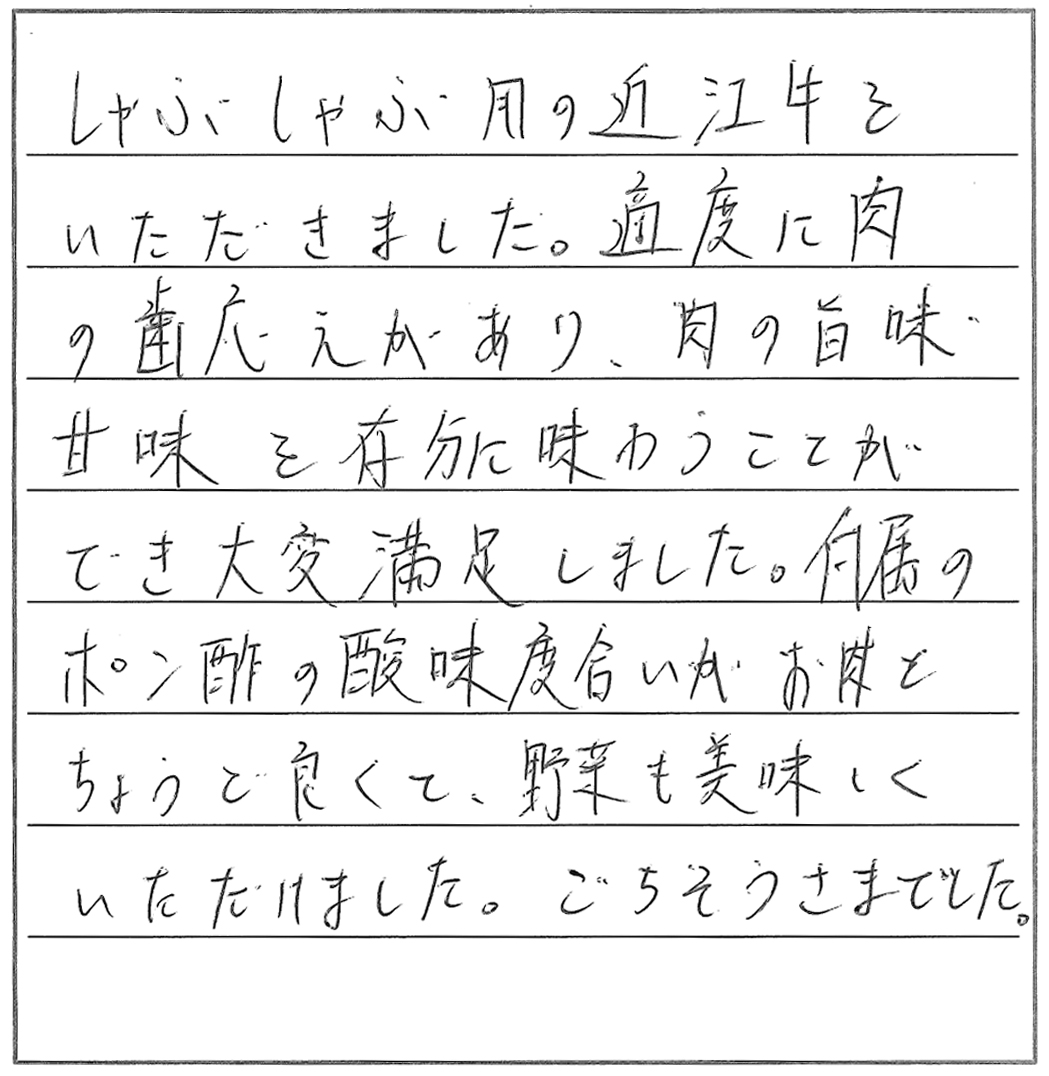 しゃぶしゃぶ用の近江牛を
いただきました。適度に肉
の歯応えがあり、肉の旨味・
甘味を存分に味わうことが
でき大変満足しました。付属の
ポン酢の酸味度合いがお肉と
ちょうど良くて、野菜も美味しく
いただけました。ごちそうさまでした。